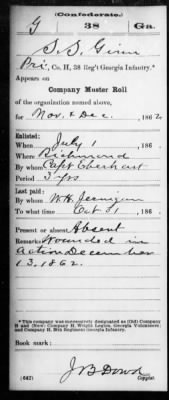 (Confederate.)
G 38 Ga.
S. S. Ginn
Pvt., Co. H, 38 Reg't Georgia Infantry.*
Appears on
Company Muster Roll
of the organization named above,
for Nov. & Dec., 1862.
Enlisted:
When July 1, 186 .
Where Richmond
By whom Capt Eberhart
Period 3 yrs
Last paid:
By whom W. H. Jernigan
To what time Oct 31, 186 .
Present or absent Absent
Remarks: Wounded in
action December
13, 1862.
*This company was successively designated as (Old) Company
H and (New) Company H, Wright Legion, Georgia Volunteers;
and Company H, 38th Regiment Georgia Infantry.
Book mark:
J B Dowd
(642) Copyist.